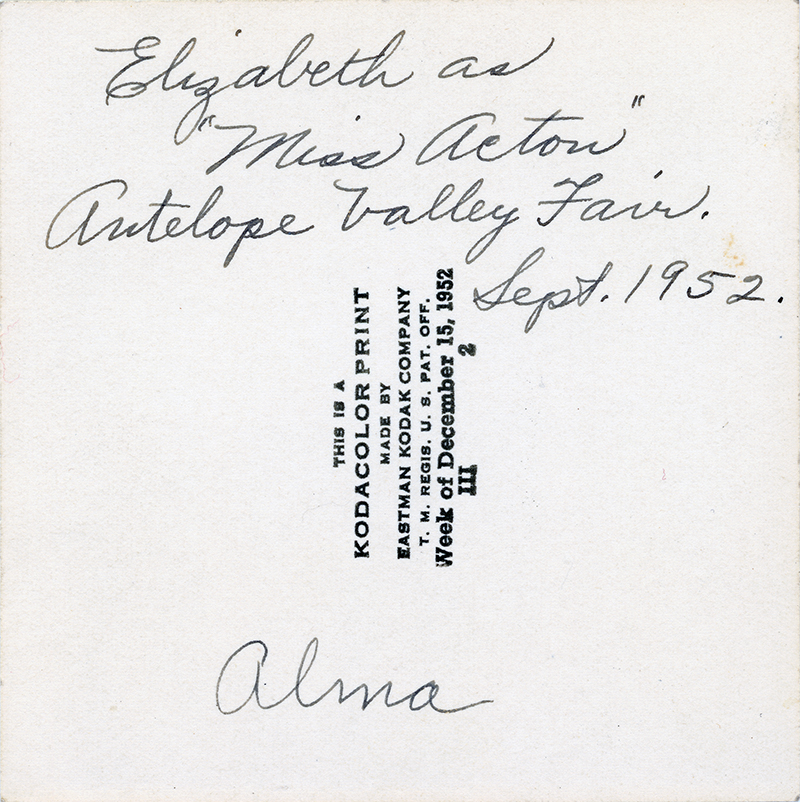 Elizabeth as
"Miss Acton"
Antelope Valley Fair.
Sept. 1952.
THIS IS A
KODACOLOR PRINT
MADE BY
EASTMAN KODAK COMPANY
T. M. REGIS. U. S. PAT. OFF.
Week of December 15, 1952
III 2
Alma